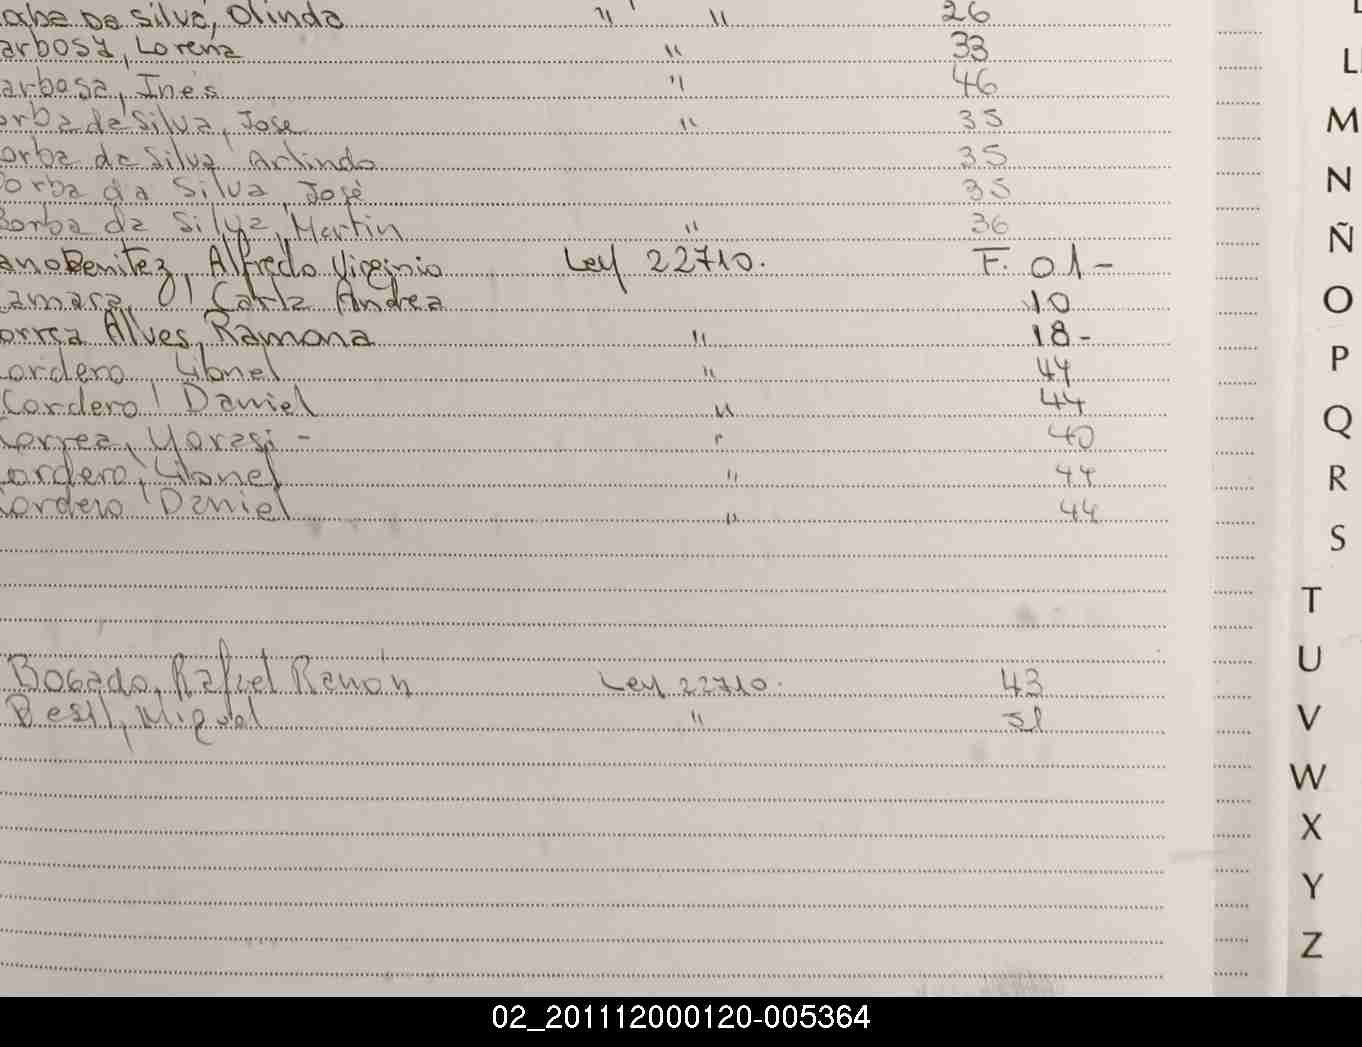 abe Da Silva, Olinda " " 26
arbosa, Lorena " 33
arbosa, Inés " 46
orba da Silva, José " 35
orba da Silva Arlindo 35
orba da Silva, José 35
Borba da Silva, Martin " 36
ano Benitez, Alfredo Virginio Ley 22710. F. 01-
amara, Carla Andrea 10
orrea Alves, Ramona " 18-
ordero Lionel " 44
Cordero, Daniel " 44
Correa, Yorasi - " 40
Cordero, Lionel " 44
Cordero, Daniel " 44
Bogado, Rafael Ramón Ley 22710. 43
Miguel " 51
L
M
N
Ñ
O
P
Q
R
S
T
U
V
W
X
Y
Z
02_201112000120-005364